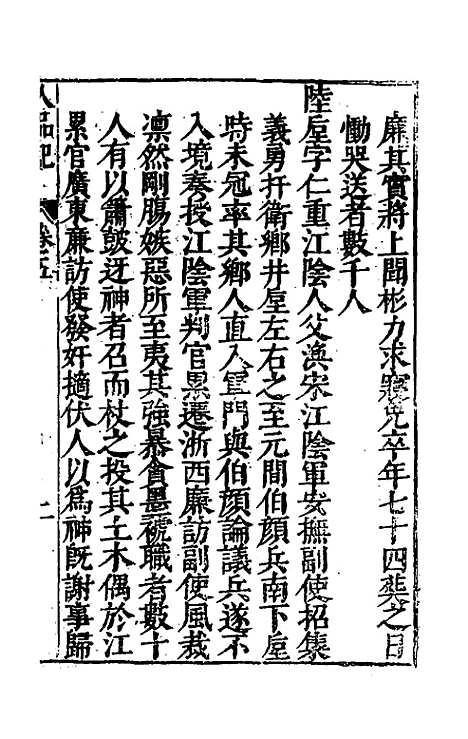 廉其實將上聞彬力求寢免卒年七十四葬之日
慟哭送者數千人
陸垕字仁重江陰人父渙宋江陰軍安撫副使招集
義勇扞衛鄉井垕左右之至元間伯顏兵南下垕
時未冠率其鄉人直入軍門與伯顏論議兵遂不
入境奏授江陰軍判官累遷浙西廉訪副使風裁
凜然剛腸嫉惡所至夷其強暴貪墨褫職者數十
人有以簫鼓迓神者召而杖之投其土木偶於江
累官廣東廉訪使發奸擿伏人以為神既謝事歸
人品紀 卷五 二